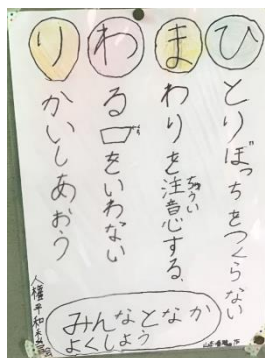 ひとりぼっちをつくらない
まわりを注意する
ちゅうい
わる口をいわない
りかいしあおう
みんなとなか
よくしよう